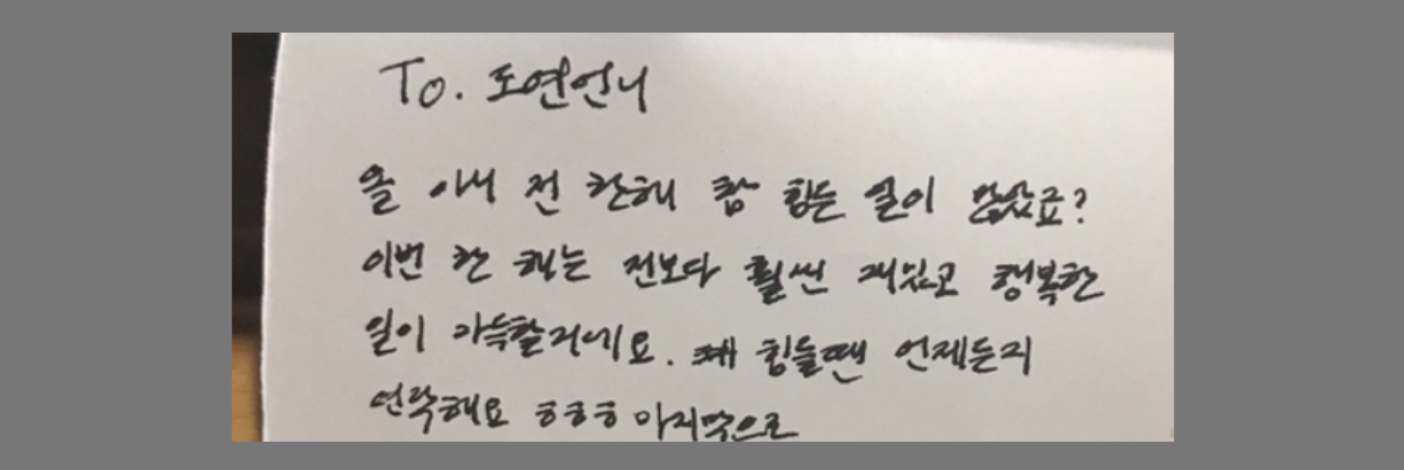 To. 도연언니
올 에서 전 한해 참 힘든 일이 많았죠?
이번 한 해는 전보다 훨씬 재밌고 행복한
일이 가득할거에요. 힘들땐 언제든지
연락해요 ㅎㅎㅎ 마지막으로